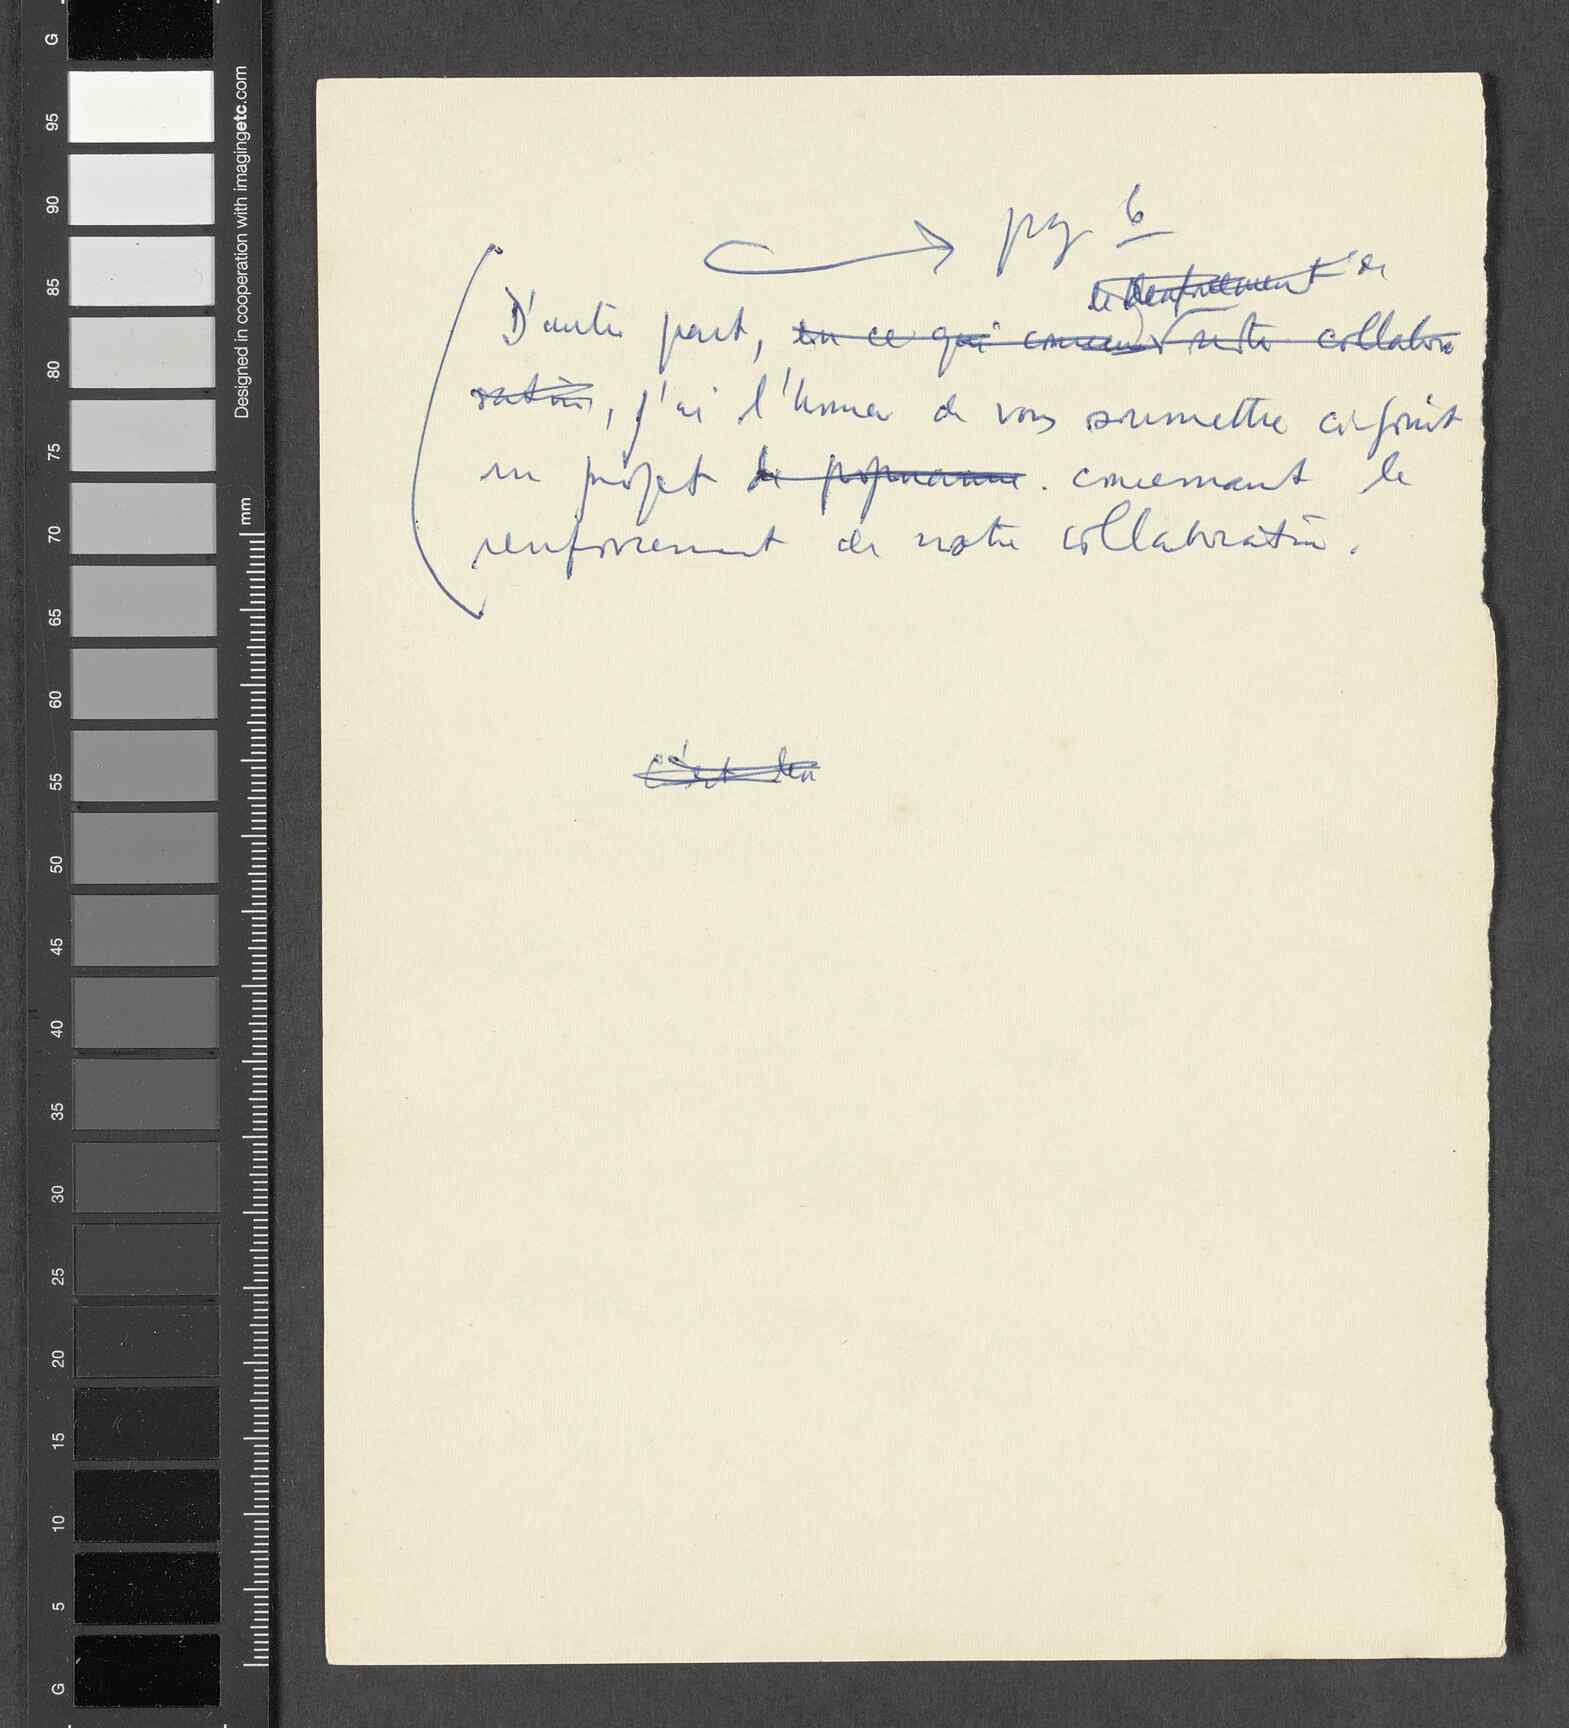 pg 6
le renforcement de
D'autre part, en ce qui concerne notre collabo
ration, j'ai l'honneur de vous soumettre ci-joint
un projet de programme. concernant le
renforcement de notre collaboration.
C'est
G
95
90
85
80
75
70
65
60
55
50
45
40
35
30
25
20
15
10
5
G
Designed in cooperation with imagingetc.com
mm